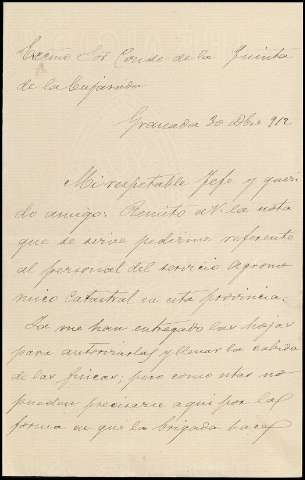 Excmo Sor Conde de la Quinta
de la Enjarada
Granada 30 Dbre 912
Mi respetable Jefe y queri-
do amigo: Remito a V. la nota
que se sirve pedirme referente
al personal del servicio agronó-
mico catastral en esta provincia.
Ya me han entregado las hojas
para autorizarlas y llenar la cabida
de las fincas; pero como estas no
pueden precisarse aqui por la
forma en que la brigada hace